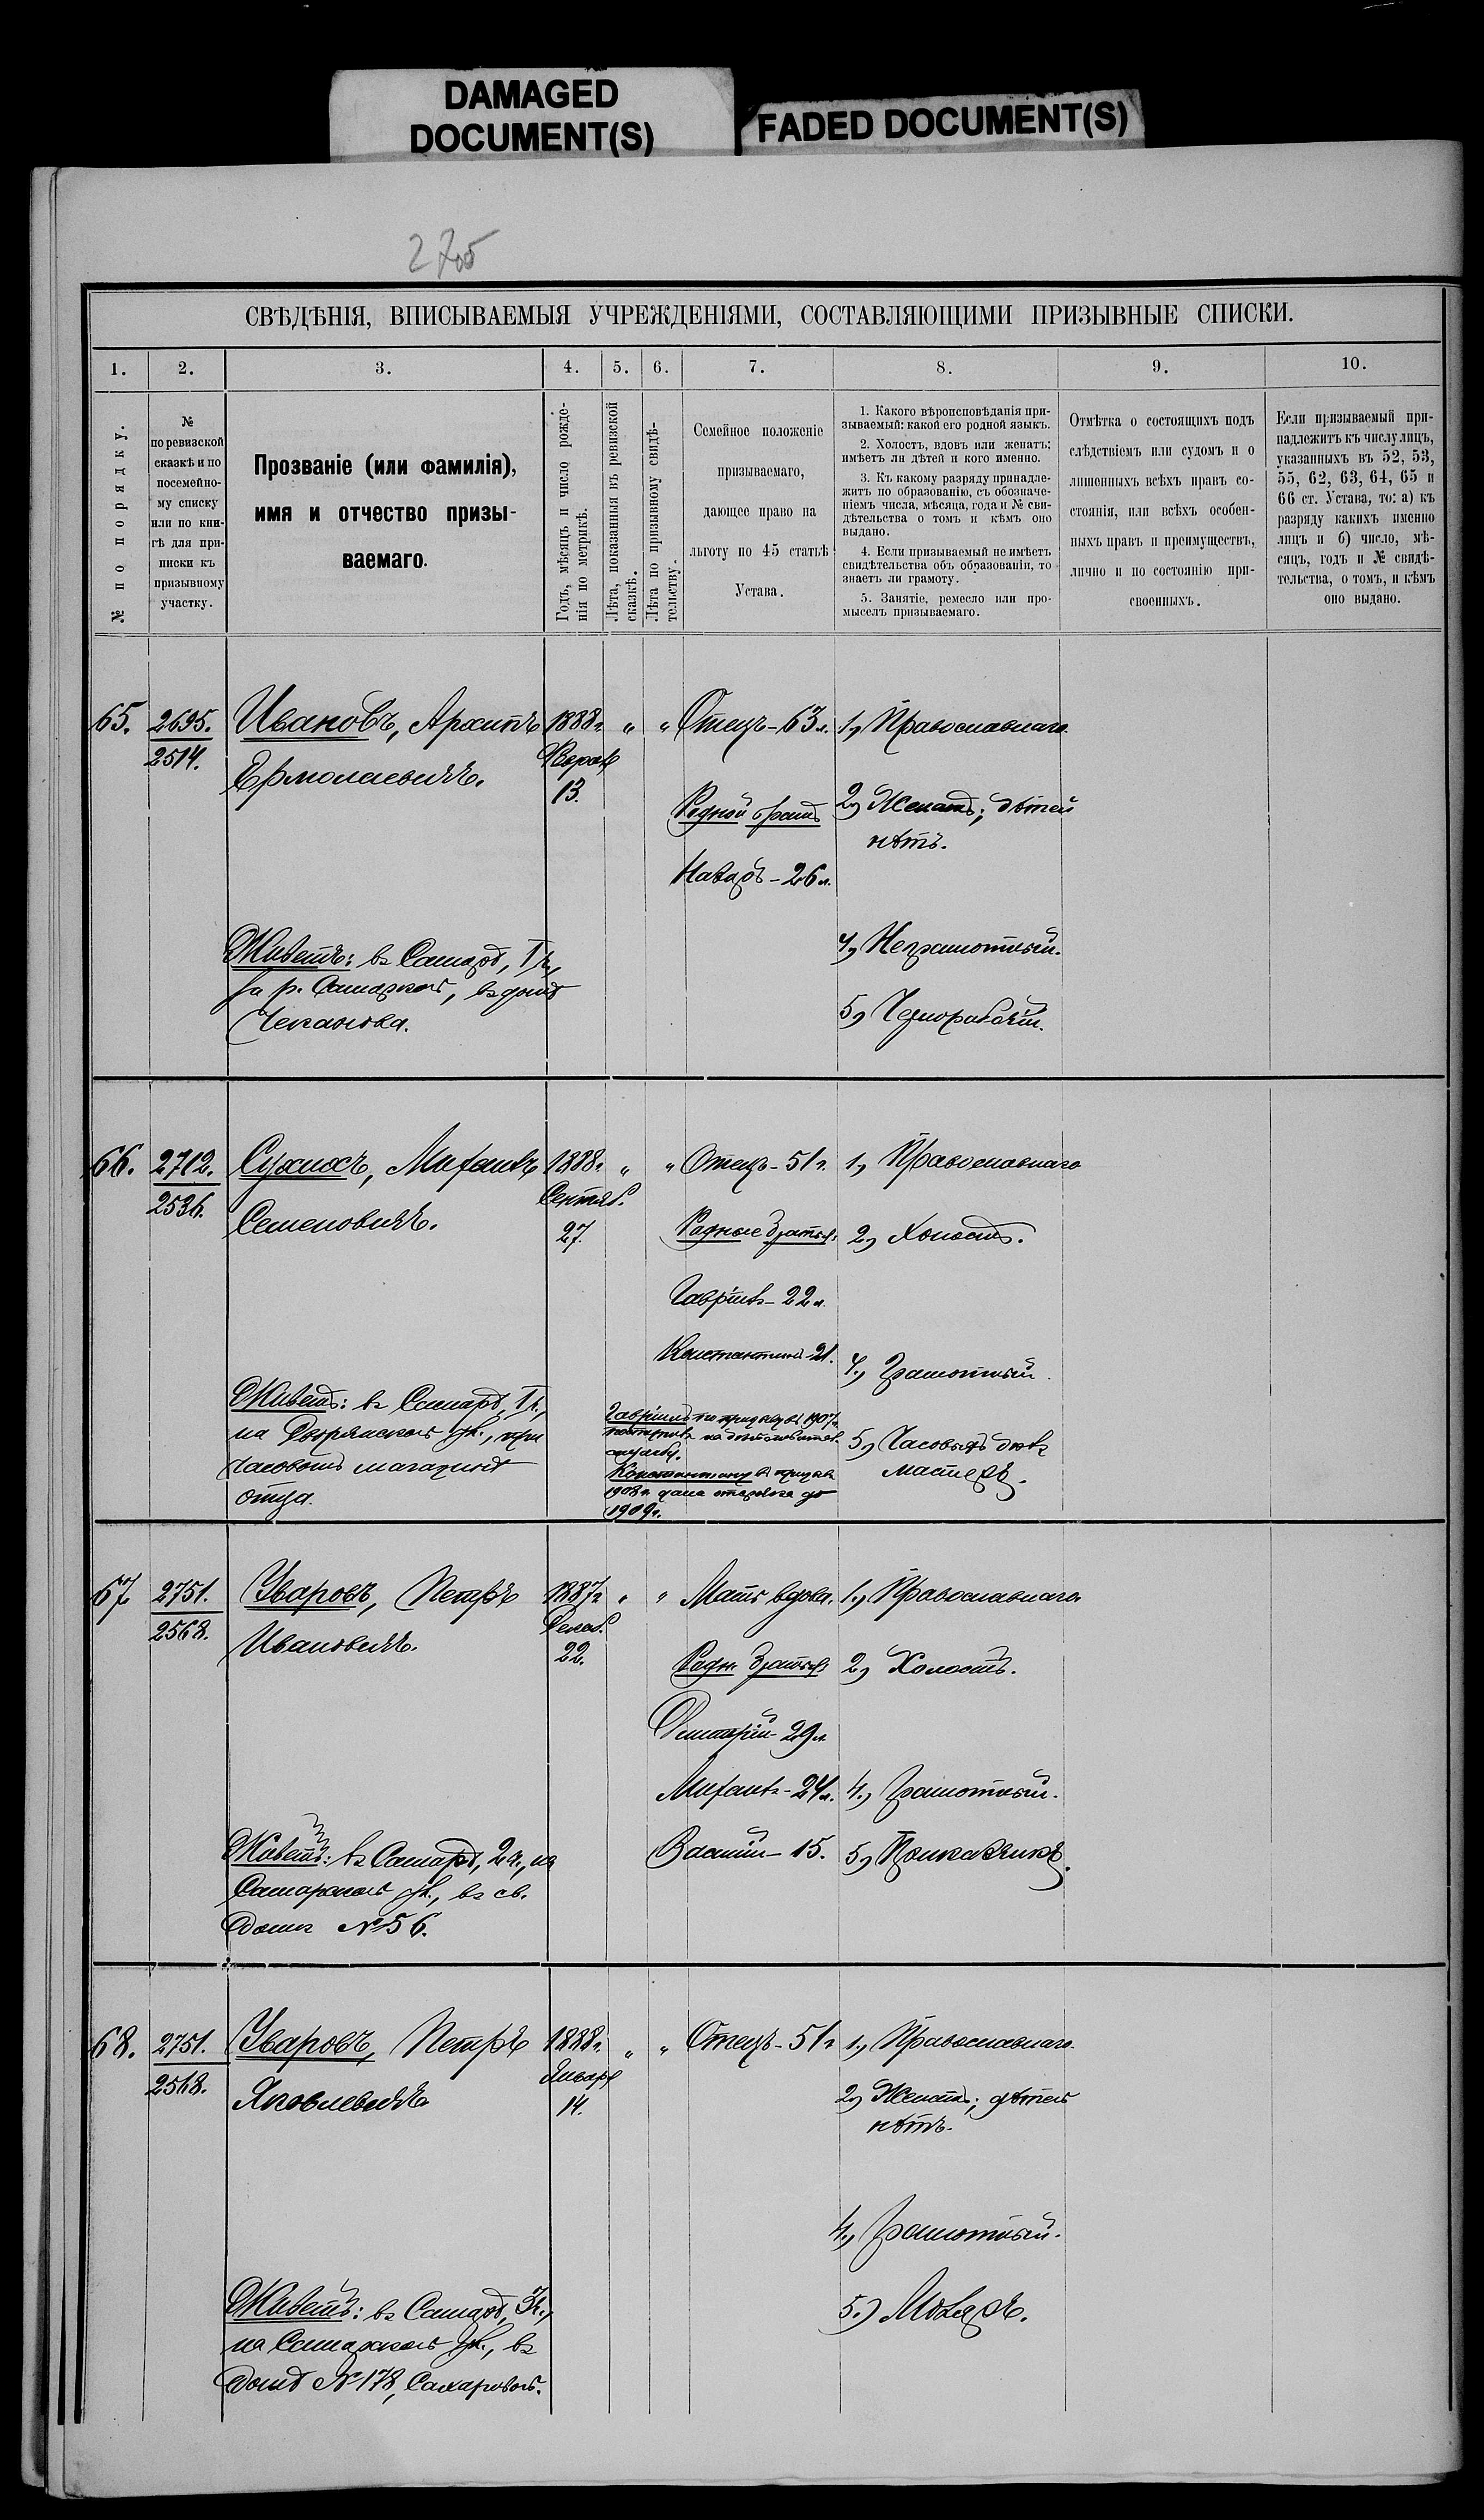 DAMAGED
DOCUMENT(S)
FADED DOCUMENT(S)
СВѢДѢНІЯ, ВПИСЫВАЕМЫЯ УЧРЕЖДЕНІЯМИ, СОСТАВЛЯЮЩИМИ ПРИЗЫВНЫЕ СПИСКИ.
1. 2. 3. 4. 5. 6. 7. 8. 9. 10.
№ по порядку.
№
по ревизской
сказкѣ и по
посемейно-
му списку
или по кни-
гѣ для при-
писки къ
призывному
участку.
Прозваніе (или фамилія),
имя и отчество призы-
ваемаго.
Годъ, мѣсяцъ и число рожде-
нія по метрикѣ.
Лѣта, показанныя въ ревизской
сказкѣ.
Лѣта по призывному свидѣ-
тельству.
Семейное положеніе
призываемаго,
дающее право на
льготу по 45 статьѣ
Устава.
1. Какого вѣроисповѣданія при-
зываемый: какой его родной языкъ.
2. Холостъ, вдовъ или женатъ;
имѣетъ ли дѣтей и кого именно.
3. Къ какому разряду принадле-
житъ по образованію, съ обозначе-
ніемъ числа, мѣсяца, года и № сви-
дѣтельства о томъ и кѣмъ оно
выдано.
4. Если призываемый не имѣетъ
свидѣтельства объ образованіи, то
знаетъ ли грамоту.
5. Занятіе, ремесло или про-
мыселъ призываемаго.
Отмѣтка о состоящихъ подъ
слѣдствіемъ или судомъ и о
лишенныхъ всѣхъ правъ со-
стоянія, или всѣхъ особен-
ныхъ правъ и преимуществъ,
лично и по состоянію при-
своенныхъ.
Если призываемый при-
надлежитъ къ числу лицъ,
указанныхъ въ 52, 53,
55, 62, 63, 64, 65 и
66 ст. Устава, то: а) къ
разряду какихъ именно
лицъ и б) число, мѣ-
сяцъ, годъ и № свидѣ-
тельства, о томъ, и кѣмъ
оно выдано.
65.
2695.
2514.
Ивановъ, Архипъ
Ермолаевичъ.
Живетъ: въ Самарѣ, 1 ч.,
за р. Самаркой, въ домѣ
Чеканова.
1888 г.
Февраля
13.
" "
Отецъ - 63 л.
Родной братъ
Назаръ - 26 л.
1) Православнаго.
2) Женатъ; дѣтей
нѣтъ.
4) Неграмотный.
5) Чернорабочій.
66.
2712.
2536.
Михаилъ
Семеновичъ.
Живетъ: въ Самарѣ, 1 ч.,
на Дворянской ул., при
часовомъ магазинѣ
отца.
1888 г.
Сентяб.
27.
" "
Отецъ - 51 г.
Родные братья:
Гавріилъ - 22 л.
Константинъ - 21.
Гавріилъ по призыву 1907 г.
поступилъ на дѣйствител.
службу.
Константину въ призывъ
1908 г. дана отсрочка до
1909 г.
1) Православнаго
2) Холостъ.
4.) Грамотный.
5) Часовыхъ дѣлъ
мастеръ.
67
2751.
2568.
Уваровъ, Петръ
Ивановичъ.
Живетъ: въ Самарѣ, 2 ч., на
Самарской ул., въ св.
домѣ № 56.
1887 г.
Декаб.
22.
" "
Мать вдова.
Родн. братья
Димитрій - 29 л.
Михаилъ - 24 л.
Василій - 15.
1.) Православнаго.
2) Холостъ.
4.) Грамотный.
5) Приказчикъ.
68.
2751.
2568.
Уваровъ, Петръ
Яковлевичъ
Живетъ: въ Самарѣ, 3 ч.,
на Самарской ул., въ
домѣ № 178,
1888 г.
Января
14.
" "
Отецъ - 51 г
1.) Православнаго.
2) Женатъ; дѣтей
нѣтъ.
4.) Грамотный.
5.) Моляръ.